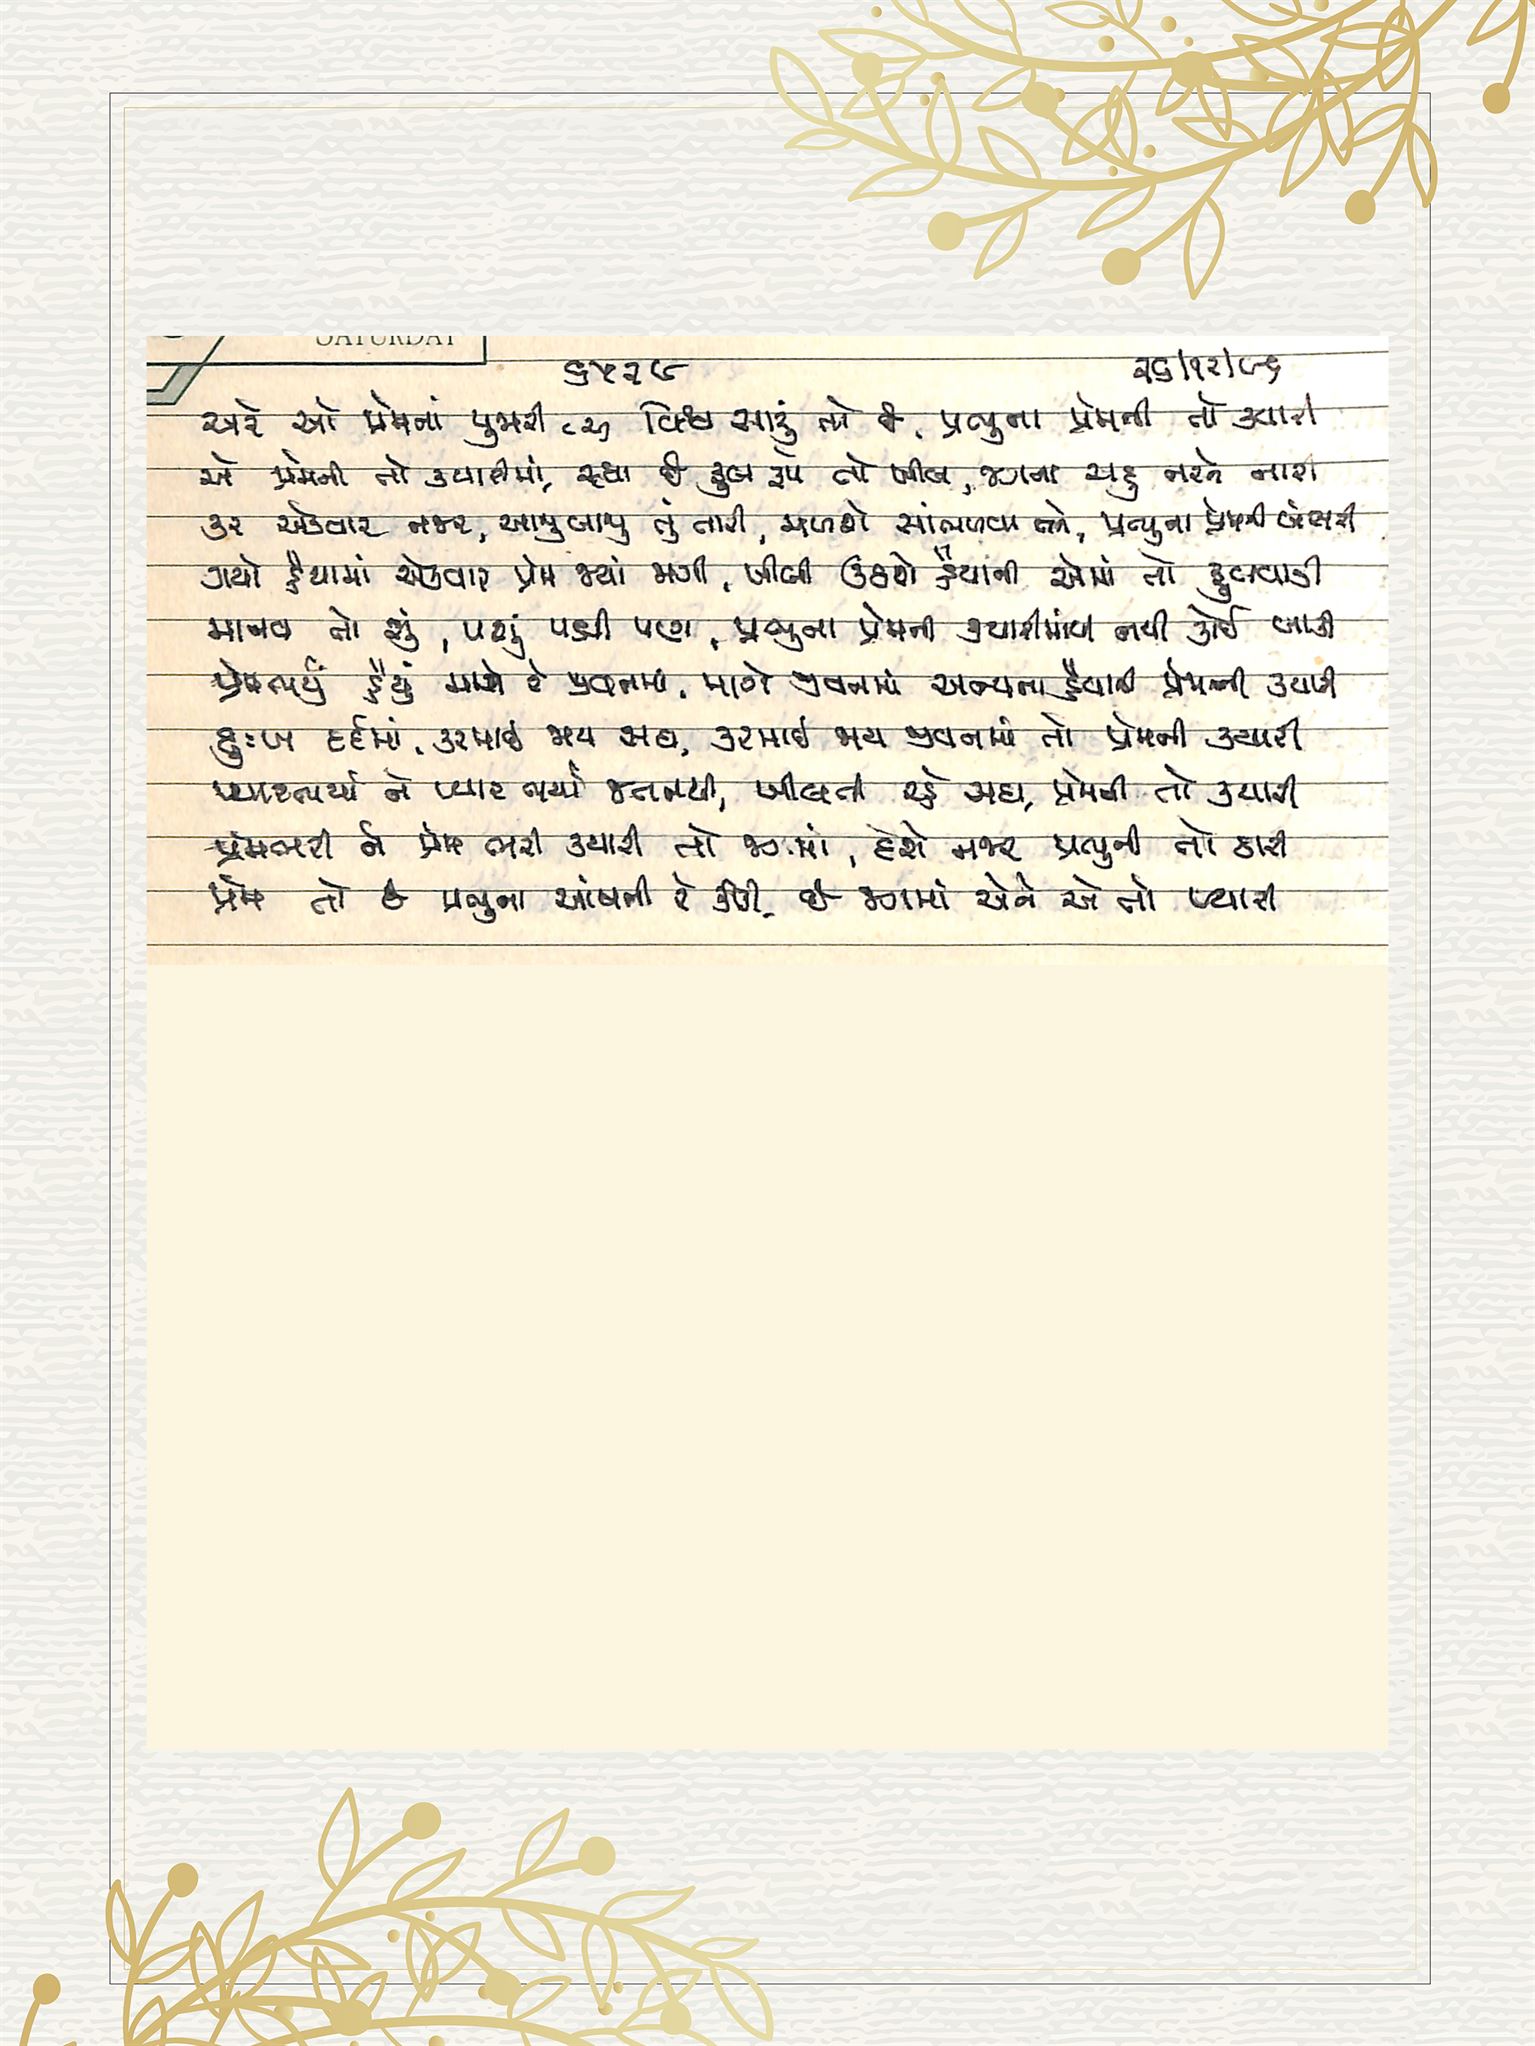 SATURDAY
૬૫૨૯ ૨૬/૧૨/૯૬
અરે ઓ પ્રેમનાં પુજારી વિશ્વ સારું તો છે, પ્રભુના પ્રેમની તો ક્યારી
એ પ્રેમની તો ક્યારીમાં, રહ્યા છે ફુલ રૂપે તો ખીલી, જગના સહુ નરને નારી
કર એકવાર નજર, આજુબાજુ તું તારી, મળશે સાંભળવા તને, પ્રભુના પ્રેમની બંસરી
ગયો હૈયામાં એકવાર પ્રેમ જ્યાં મળી, ખીલી ઉઠશે હૈયાંની એમાં તો ફુલવાડી
માનવ તો શું, પશુ પક્ષી પણ, પ્રભુના પ્રેમની ક્યારીમાંથી નથી કોઈ બાકી
પ્રેમભર્યું હૈયું માગે રે જીવનમાં, માગે જીવનમાં અન્યના હૈયાની પ્રેમની ક્યારી
દુઃખ દર્દમાં, કરમાઈ જાય સદા, કરમાઈ જાય જીવનમાં તો પ્રેમની ક્યારી
પ્યારભર્યા ને પ્યાર ભર્યા જતનથી, ખીલતી રહે સદા, પ્રેમની તો ક્યારી
પ્રેમભરી ને પ્રેમ ભરી ક્યારી તો જગમાં, દેશે નજર પ્રભુની તો ઠારી
પ્રેમ તો છે પ્રભુના આંખની રે કીકી, છે જગમાં એને એ તો પ્યારી